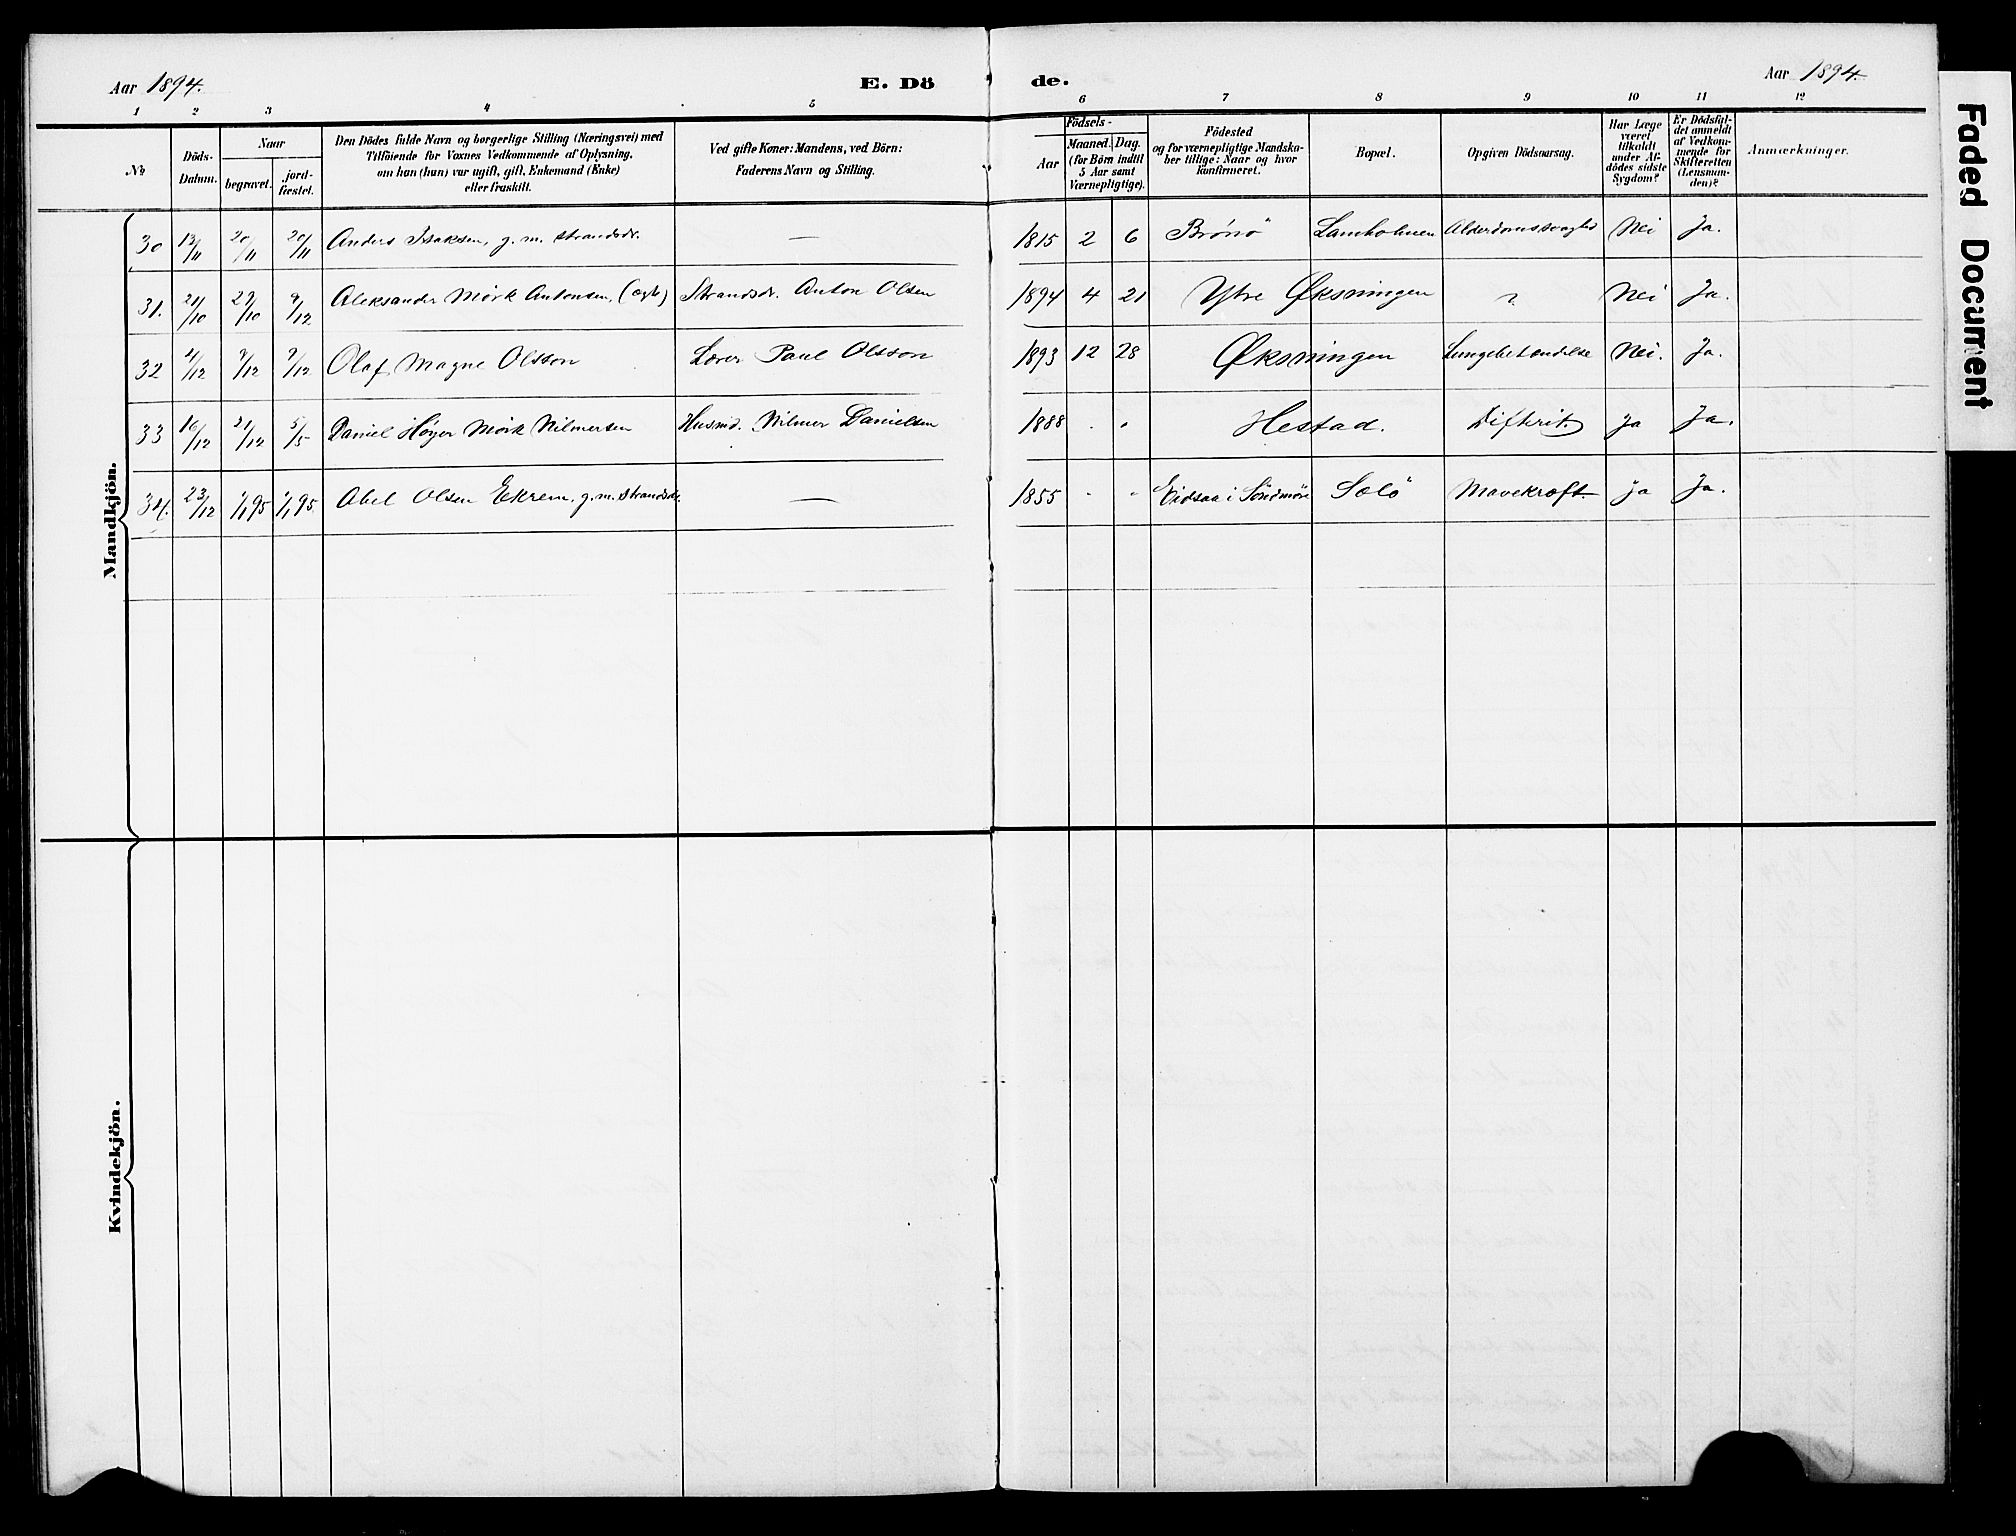 Aar 1894.
E. Dö
de.
Aar 1894.
1 2 3 4 5 6 7 8 9 10 11 12
No
Döds-
Datum.
Naar
begravet.
jord-
fæstet.
Den Dödes fulde Navn og borgerlige Stilling (Næringsvei) med
Tilföiende for Voxnes Vedkommende af Oplysning,
om han (hun) var ugift, gift, Enkemand (Enke)
eller fraskilt.
Ved gifte Koner: Mandens, ved Börn:
Faderens Navn og Stilling.
Födsels-
Aar
Maaned. Dag.
(for Börn indtil
5 Aar samt
Værnepligtige).
Födested
og for værnepligtige Mandska-
ber tillige: Naar og hvor
konfirmeret.
Bopæl.
Opgiven Dödsaarsag.
Har Læge
været
tilkaldt
under Af-
dödes sidste
Sygdom?
Er Dödsfal-
det anmeldt
af Vedkom-
mende for
Skifteretten
(Lensman-
den)?
Anmærkninger.
Mandkjön.
30 13/11 20/11 20/11 Anders Isaksen, g. m. strandsdr. — 1815 2 6 Brönö Lamholmen Alderdomssvaghed Nei Ja.
31. 21/10 29/10 9/12 Aleksander Mørk Antonsen, (ægte) Strandsdr. Anton Olsen 1894 4 21 Ytre Øksningen ? Nei Ja.
32 /12 9/12 9/12 Olaf Magne Olsson Lærer Paul Olsson 1893 12 28 Øksningen Lungebetændelse Nei. Ja.
33 16/12 21/12 5/5 Daniel Høyer Mørk Nilmersen Husmd. Nilmer Danielsen 1888 " " Hestad. Difterit. Ja Ja.
34. 23/12 1/1 95 1/1 95. Abel Olsen Ekrem, g. m. strandsdr. — 1855 " " Eidsaa i Söndmöre Solö Mavekræft. Ja Ja.
Kvindekjön.
Faded Document